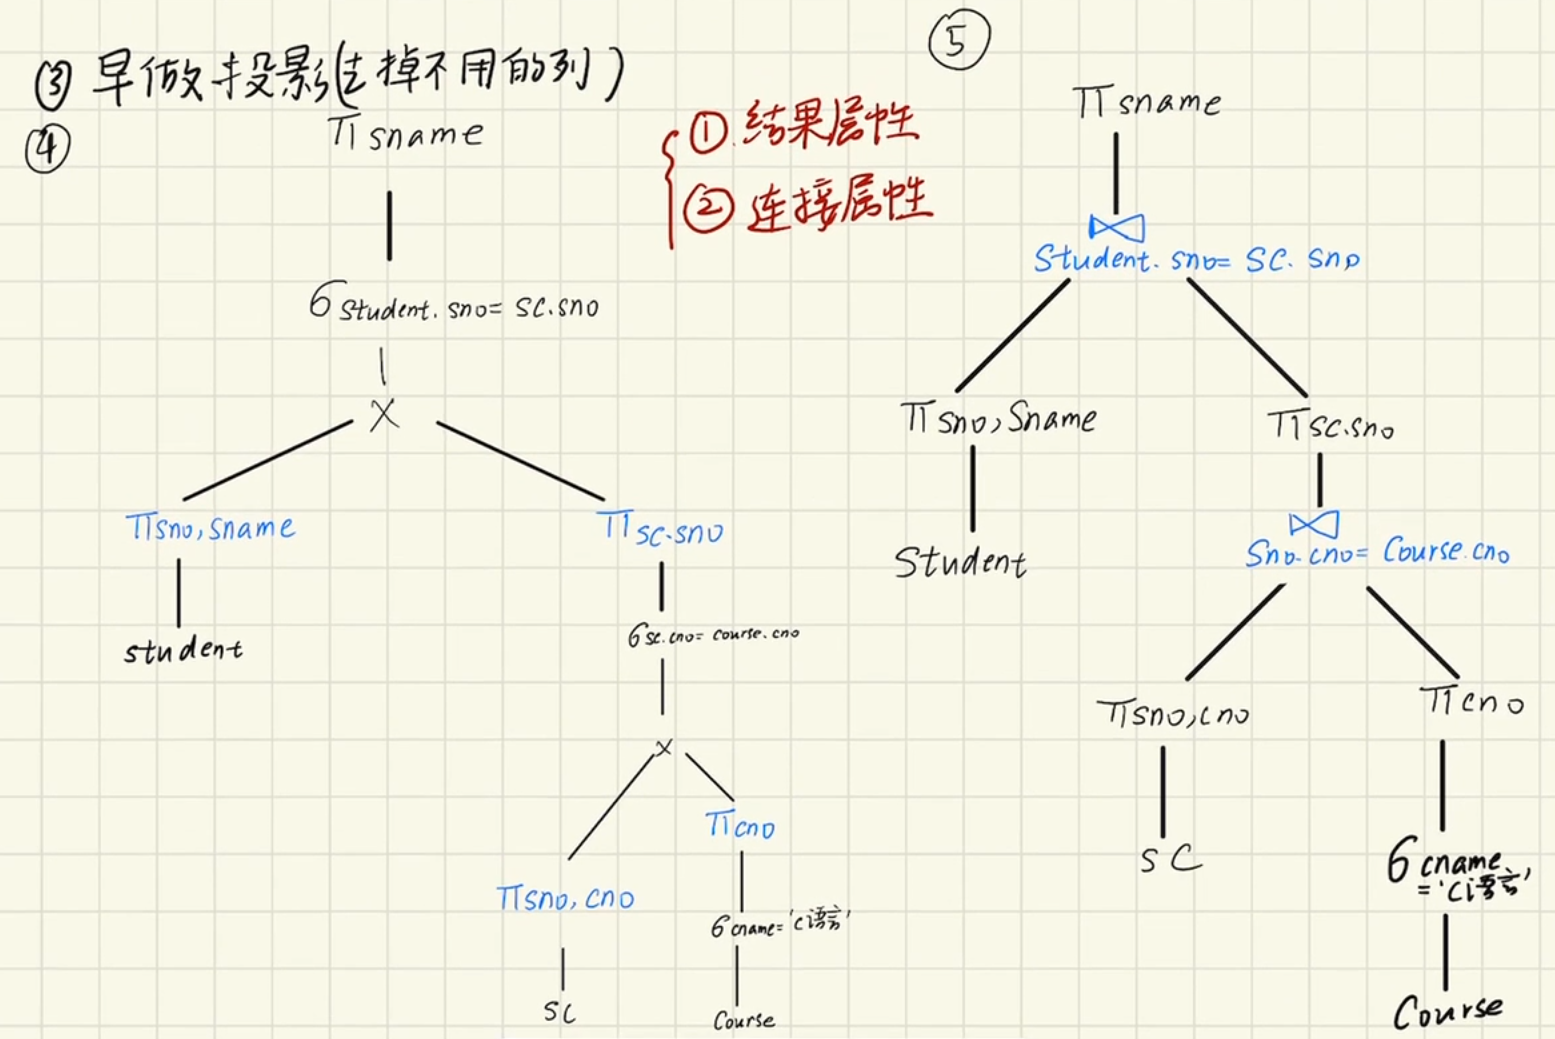 ③ 早做投影(去掉不用的列)
④
Π sname
σ Student.sno= SC.sno
X
Π sno,sname
Π SC.sno
student
σ sc.cno= course.cno
x
Π cno
Π sno,cno
σ cname='C语言'
SC
Course
① 结果属性
② 连接属性
⑤
Π sname
⋈
Student.sno= SC.Sno
Π sno,Sname
Π SC.sno
Student
⋈
Sno.cno= Course.cno
Π sno,cno
Π cno
SC
σ cname
='C语言'
Course